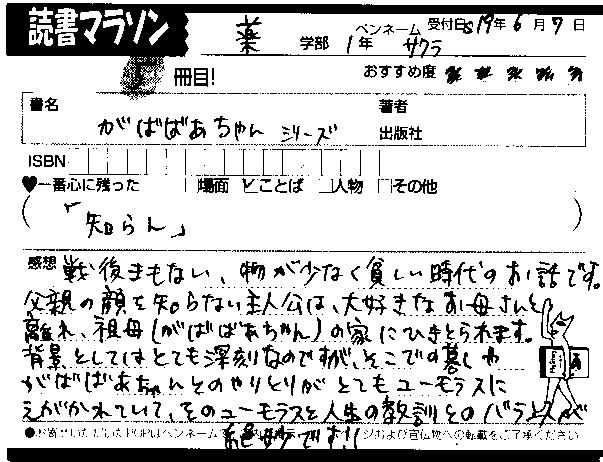 読書マラソン
薬 学部 1年 ペンネーム サクラ 受付日 S19年6月7日
冊目!
おすすめ度
書名 がばばあちゃん シリーズ
著者
出版社
ISBN
♥一番心に残った □場面 ☑ことば □人物 □その他
(「知らん」)
感想 戦後まもない、物が少なく貧しい時代のお話です。
父親の顔を知らない主人公は、大好きなお母さんと
離れ、祖母(がばばあちゃん)の家にひきとられます。
背景としてはとても深刻なのですが、そこでの暮しや
がばばあちゃんとのやりとりがとてもユーモラスに
えがかれていて、そのユーモラスと人生の教訓とのバランスが
絶妙です!!
●お寄せいただいたPOPはペンネーム ジおよび宣伝物への転載をご了承ください